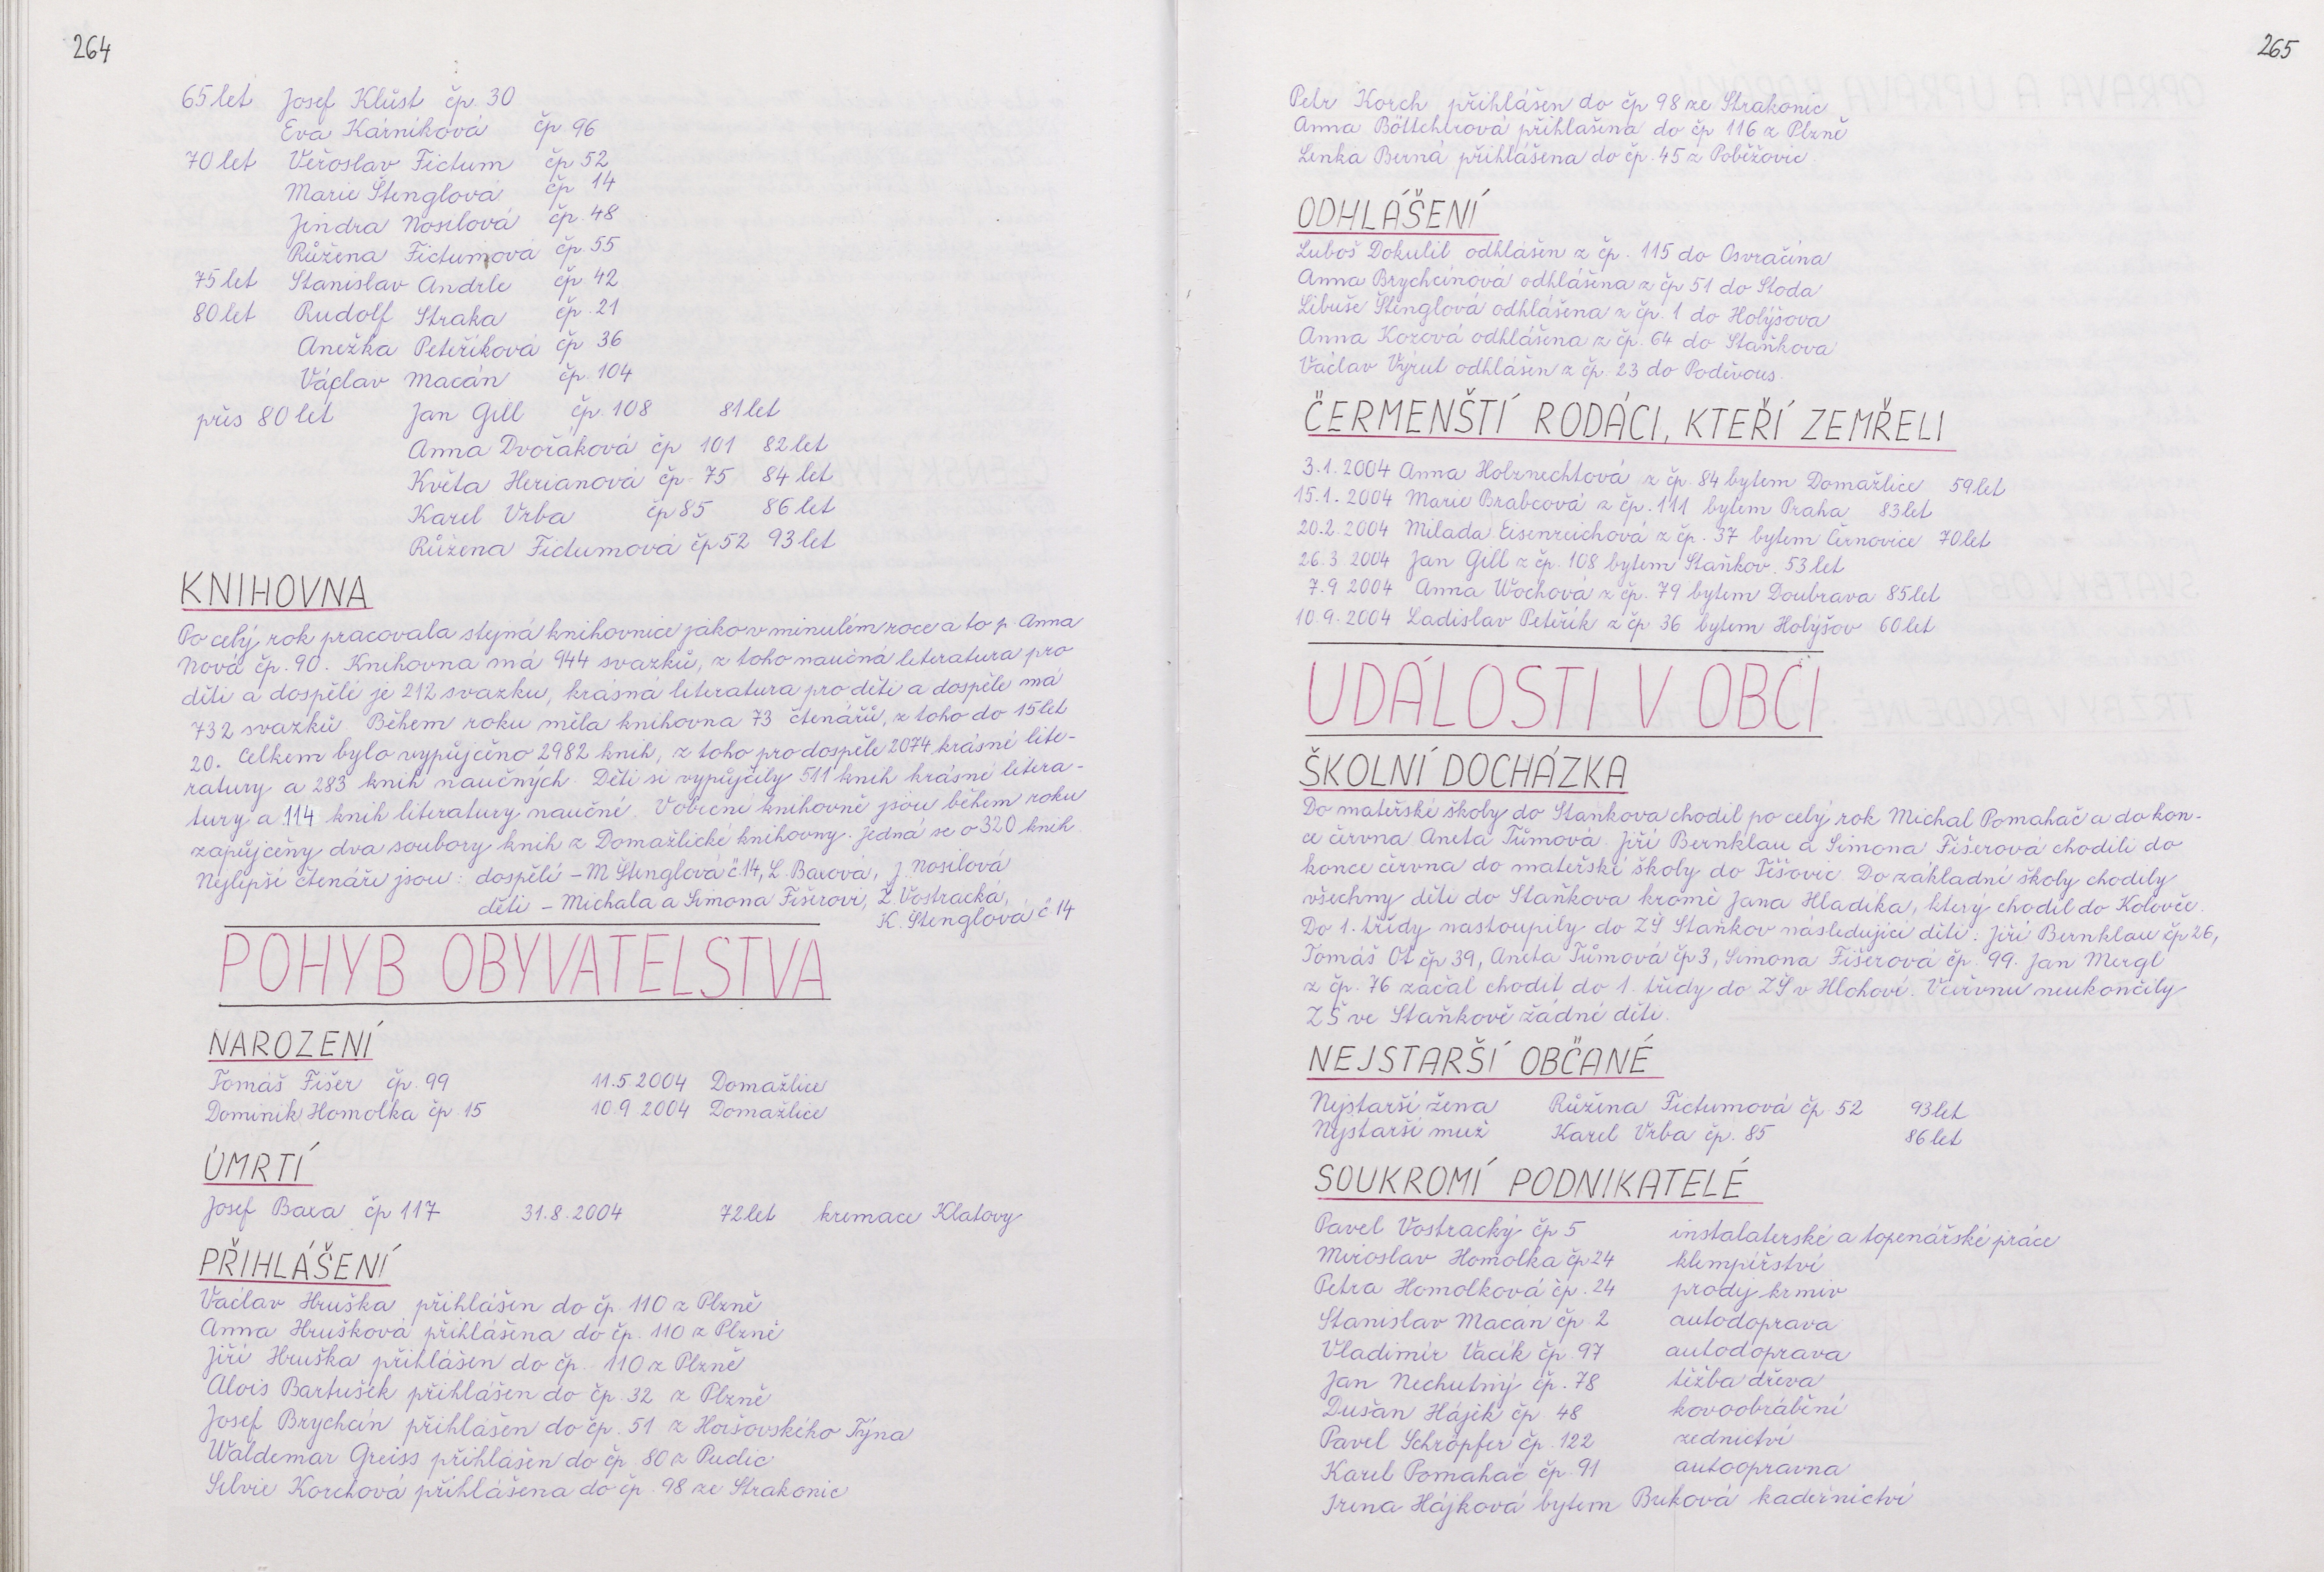 264
65 let Josef Klůst čp. 30
Eva Kárníková čp 96
70 let Věroslav Fictum čp 52
Marie Štenglová čp 14
Jindra Nosilová čp. 48
Růžena Fictumová čp. 55
75 let Stanislav Andrle čp. 42
80 let Rudolf Straka čp. 21
Anežka Peteříková čp 36
Václav Macán čp. 104
přes 80 let Jan Gill čp. 108 81 let
Anna Dvořáková čp 101 82 let
Květa Herianová čp 75 84 let
Karel Vrba čp 85 86 let
Růžena Fictumová čp 52 93 let
KNIHOVNA
Po celý rok pracovala stejná knihovnice jako v minulém roce a to p. Anna
Nová čp. 90. Knihovna má 944 svazků, z toho naučná literatura pro
děti a dospělé je 212 svazku, krásná literatura pro děti a dospěle má
732 svazků Během roku měla knihovna 73 čtenářů, z toho do 15 let
20. Celkem bylo vypůjčeno 2982 knih, z toho pro dospěle 2074 krásné lite-
ratury a 283 knih naučných. Děti si vypůjčily 511 knih krásné litera-
tury a 114 knih literatury naučné. V obecní knihovně jsou během roku
zapůjčeny dva soubory knih z Domažlické knihovny. Jedná se o 320 knih.
Nejlepší čtenáři jsou: dospělí - M Štenglová č.14, L. Baxová, J. Nosilová
děti - Michala a Simona Fišerovi, Ž. Vostracká,
K. Stenglová č 14
POHYB OBYVATELSTVA
NAROZENÍ
Tomáš Fišer čp. 99 11.5.2004 Domažlice
Dominik Homolka čp. 15 10.9 2004 Domažlice
ÚMRTÍ
Josef Baxa čp 117 31.8.2004 72 let kremace Klatovy
PŘIHLÁŠENÍ
Václav Hruška přihlášen do čp. 110 z Plzně
Anna Hrušková přihlášena do čp. 110 z Plzně
Jiří Hruška přihlášen do čp. 110 z Plzně
Alois Bartušek přihlášen do čp. 32 z Plzně
Josef Brychcín přihlášen do čp. 51 z Horšovského Týna
Waldemar Greiss přihlášen do čp. 80 z Pudic
Silvie Korchová přihlášena do čp. 98 ze Strakonic
265
Petr Korch přihlášen do čp 98 ze Strakonic
Anna Böttcherová přihlašena do čp 116 z Plzně
Lenka Berná přihlášena do čp. 45 z Poběžovic
ODHLÁŠENÍ
Luboš Dokulil odhlášen z čp. 115 do Osvračína
Anna Brychcínová odhlášena z čp 51 do Stoda
Libuše Štenglová odhlášena z čp. 1 do Holýšova
Anna Kozová odhlášena z čp. 64 do Staňkova
Václav Výrut odhlášen z čp. 23 do Poděvous.
ČERMENŠTÍ RODÁCI, KTEŘÍ ZEMŘELI
3.1.2004 Anna Holznechtová z čp. 84 bytem Domažlice 59 let
15.1.2004 Marie Brabcová z čp. 111 bytem Praha 83 let
20.2.2004 Milada Eisenreichová z čp. 37 bytem Černovice 70 let
26.3.2004 Jan Gill z čp. 108 bytem Staňkov. 53 let
7.9 2004 Anna Wochová z čp. 79 bytem Doubrava 85 let
10.9.2004 Ladislav Peteřík z čp 36 bytem Holýšov 60 let
UDÁLOSTI V OBCI
ŠKOLNÍ DOCHÁZKA
Do mateřské školy do Staňkova chodil po celý rok Michal Pomahač a do kon-
ce června Aneta Tůmová. Jiří Bernklau a Simona Fišerová chodili do
konce června do mateřské školy do Těšovic. Do základní školy chodily
všechny děti do Staňkova kromě Jana Hladíka, který chodil do Kolovče.
Do 1. třídy nastoupily do ZŠ Staňkov následující děti: Jiří Bernklau čp 26,
Tomáš Ot čp 39, Aneta Tůmová čp 3, Simona Fišerová čp. 99. Jan Mergl
z čp. 76 začal chodit do 1. třídy do ZŠ v Hlohové. V červnu neukončily
ZŠ ve Staňkově žádné děti.
NEJSTARŠÍ OBČANÉ
Nejstarší žena Růžena Fictumová čp 52 93 let
Nejstarší muž Karel Vrba čp. 85 86 let
SOUKROMÍ PODNIKATELÉ
Pavel Vostracký čp 5 instalaterské a topenářské práce
Miroslav Homolka čp 24 klempířství
Petra Homolková čp. 24 prodej krmiv
Stanislav Macán čp. 2 autodoprava
Vladimír Vacík čp. 97 autodoprava
Jan Nechutný čp. 78 těžba dřeva
Dušan Hájek čp. 48 kovoobrábění
Pavel Schröpfer čp. 122 zednictví
Karel Pomahač čp. 91 autoopravna
Irena Hájková bytem Buková kadeřnictví